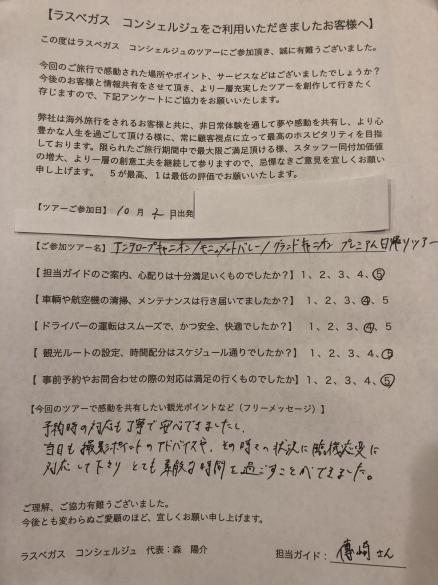 【ラスベガス　コンシェルジュをご利用いただきましたお客様へ】
この度はラスベガス　コンシェルジュのツアーにご参加頂き、誠に有難うございました。
今回のご旅行で感動された場所やポイント、サービスなどはございましたでしょうか？
今後のお客様と情報共有をさせて頂き、より一層充実したツアーを創作して行きたく
存じますので、下記アンケートにご協力をお願いいたします。
弊社は海外旅行をされるお客様と共に、非日常体験を通して夢や感動を共有し、より心
豊かな人生を過ごして頂ける様に、常に顧客視点に立って最高のホスピタリティを目指
しております。限られたご旅行期間中で最大限ご満足頂ける様、スタッフ一同付加価値
の増大、より一層の創意工夫を継続して参りますので、忌憚なきご意見を宜しくお願い
申し上げます。　５が最高、１は最低の評価でお願いいたします。
【ツアーご参加日】10月2日出発
【ご参加ツアー名】アンテロープキャニオン/モニュメントバレー/グランドキャニオン プレミアム日帰りツアー
【担当ガイドのご案内、心配りは十分満足いくものでしたか？】1、2、3、4、⑤
【 車輌や航空機の清掃、メンテナンスは行き届いてましたか？】1、2、3、④、5
【 ドライバーの運転はスムーズで、かつ安全、快適でしたか？】1、2、3、④、5
【 観光ルートの設定、時間配分はスケジュール通りでしたか？】1、2、3、4、⑤
【 事前予約やお問合わせの際の対応は満足の行くものでしたか】1、2、3、4、⑤
【今回のツアーで感動を共有したい観光ポイントなど（フリーメッセージ）】
予約時の対応も丁寧で安心できましたし、
当日も撮影ポイントのアドバイスや、その時々の状況に臨機応変に
対応して下さり とても素敵な時間を過ごすことができました。
ご理解、ご協力有難うございました。
今後とも変わらぬご愛顧のほど、宜しくお願い申し上げます。
ラスベガス　コンシェルジュ　代表：森　陽介
担当ガイド：　崎さん